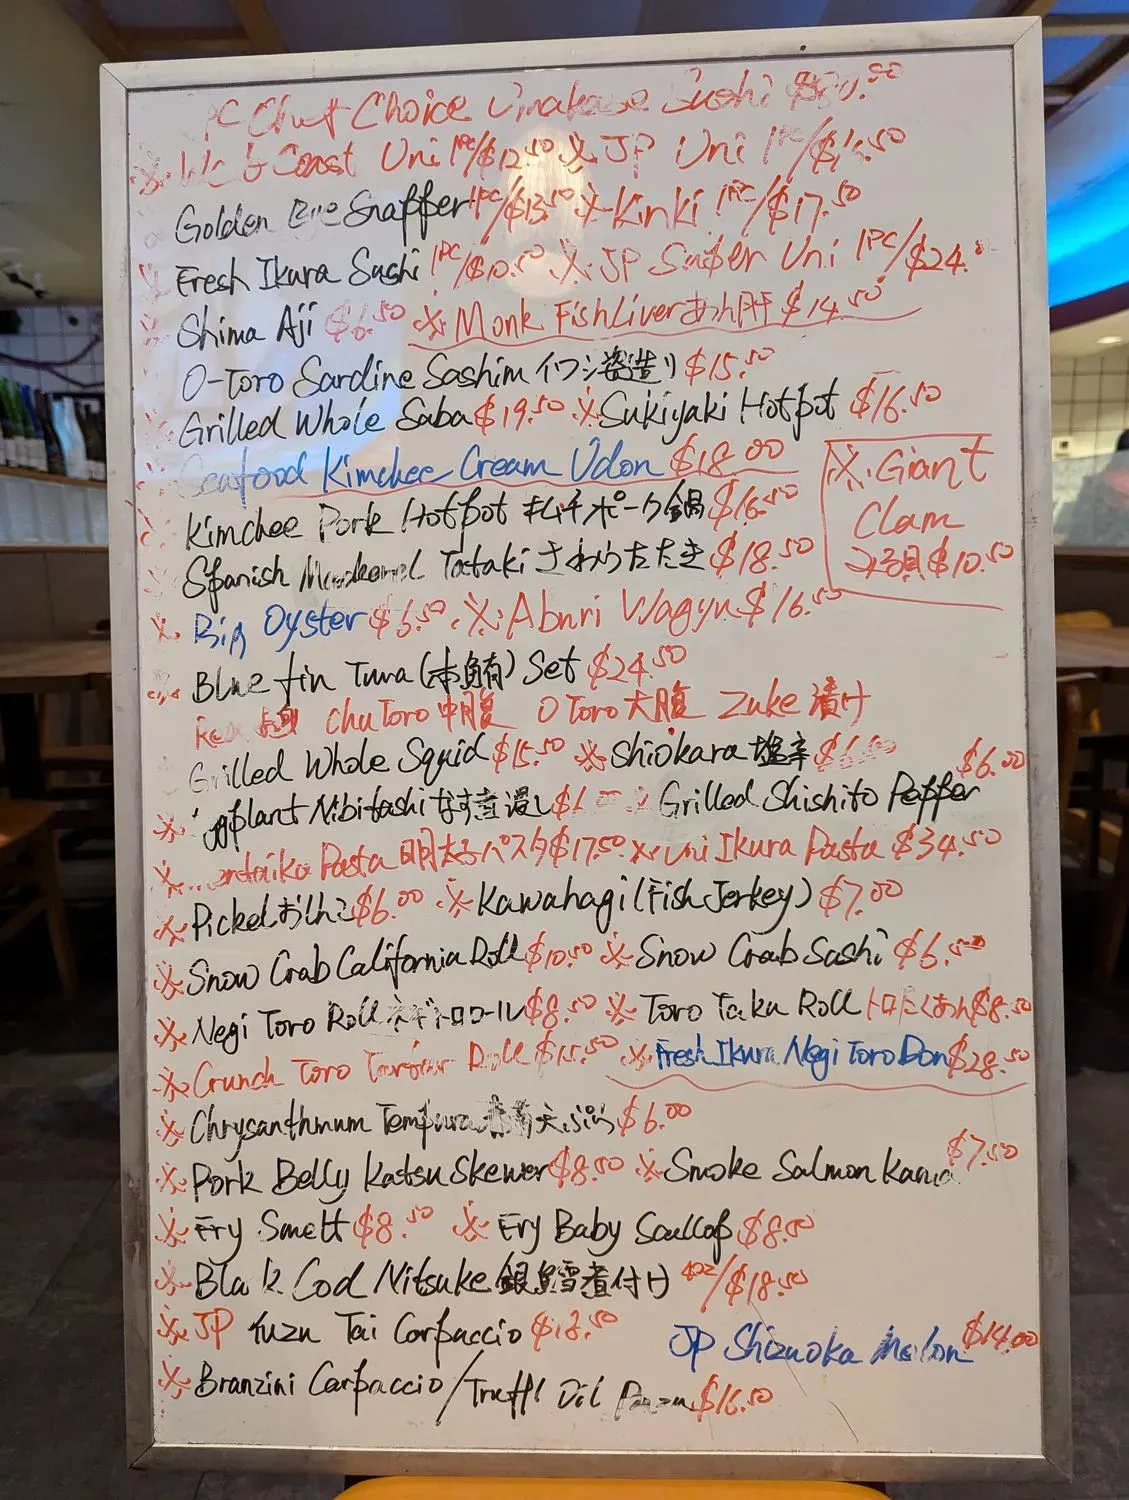 PC Chef Choice Omakase Sushi
※ West Coast Uni 1PC/$12.50 ※ JP Uni 1PC/
Golden Eye Snapper 1PC/$13.50 ※ Kinki 1PC/$17.50
Fresh Ikura Sushi 1PC/$10.50 ※ JP Super Uni 1PC/$24.
Shima Aji $6.50 ※ Monk Fish Liver あん肝 $14.50
O-Toro Sardine Sashim イワシ姿造り $15.50
Grilled Whole Saba $19.50 ※ Sukiyaki Hotpot $16.50
Seafood Kimchee Cream Udon $18.00
※ Giant Clam みる貝 $10.50
Kimchee Pork Hotpot キムチポーク鍋 $16.50
Spanish Mackerel Tataki さわらたたき $18.50
※ Big Oyster $6.50 ※ Aburi Wagyu $16.50
Blue fin Tuna (本鮪) Set $24.50
Red Chu Toro 中腹 O Toro 大腹 Zuke 漬け
Grilled Whole Squid $15.50 ※ Shiokara 塩辛
※ ggplant Nibitashi なす煮浸し Grilled Shishito Pepper $6.00
※ entaiko Pasta 明太子パスタ $17.50 ※ Uni Ikura Pasta $34.50
※ Pickel おしんこ $6.00 ※ Kawahagi (Fish Jerkey) $7.00
※ Snow Crab California Roll $10.50 ※ Snow Crab Sushi $6.50
※ Negi Toro Roll ネギトロロール $8.50 ※ Toro Taku Roll トロたくあん $8.50
※ Crunch Toro Roll $15.50 ※ Fresh Ikura Negi Toro Don $28.50
※ Chrysanthmum Tempura 天ぷら $6.00
※ Pork Belly Katsu Skewer $8.50 ※ Smoke Salmon Kama $7.50
※ Fry Smelt $8.50 ※ Fry Baby Scallop $8.50
※ Black Cod Nitsuke 銀鱈煮付け 4oz/$18.50
※ JP Yuzu Tai Carpaccio
JP Shizuoka Melon $14.00
※ Branzini Carpaccio/Truffl Oil Ponzu $16.50